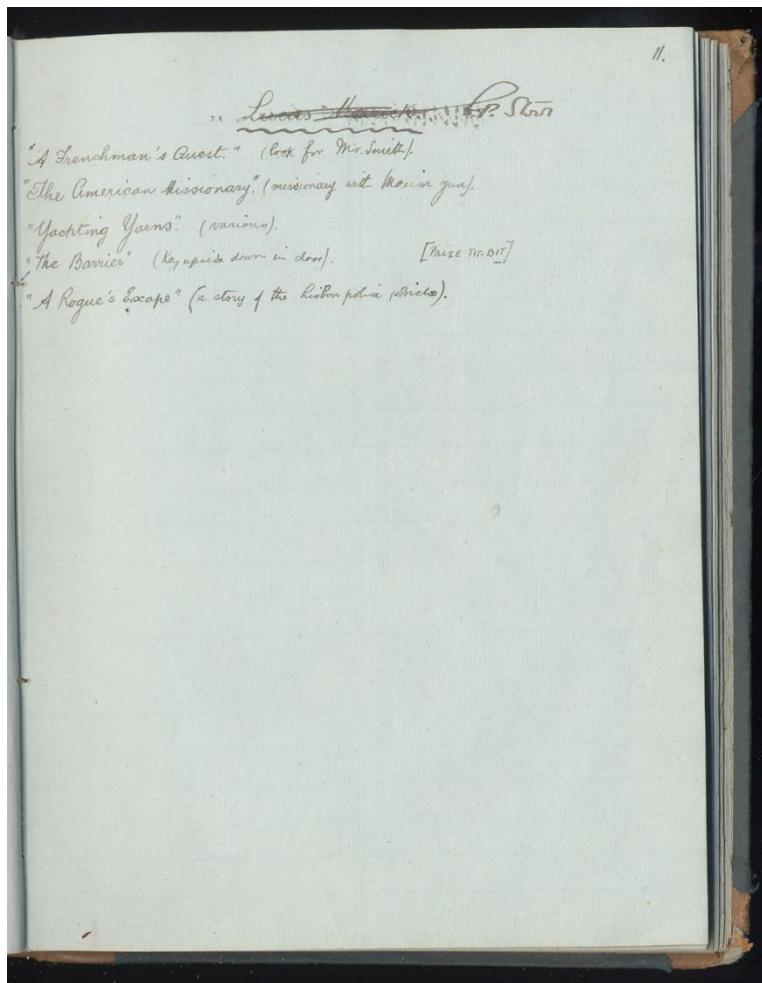 11.
Lucas
"A Frenchman's Quest." (look for Mr. Smith).
"The American Missionary." (missionary with Maxim gun).
"Yachting Yarns." (various).
"The Barrier" (key upside down in door). [PRIZE TIT-BIT]
"A Rogue's Escape" (a story of the Lisbon police).